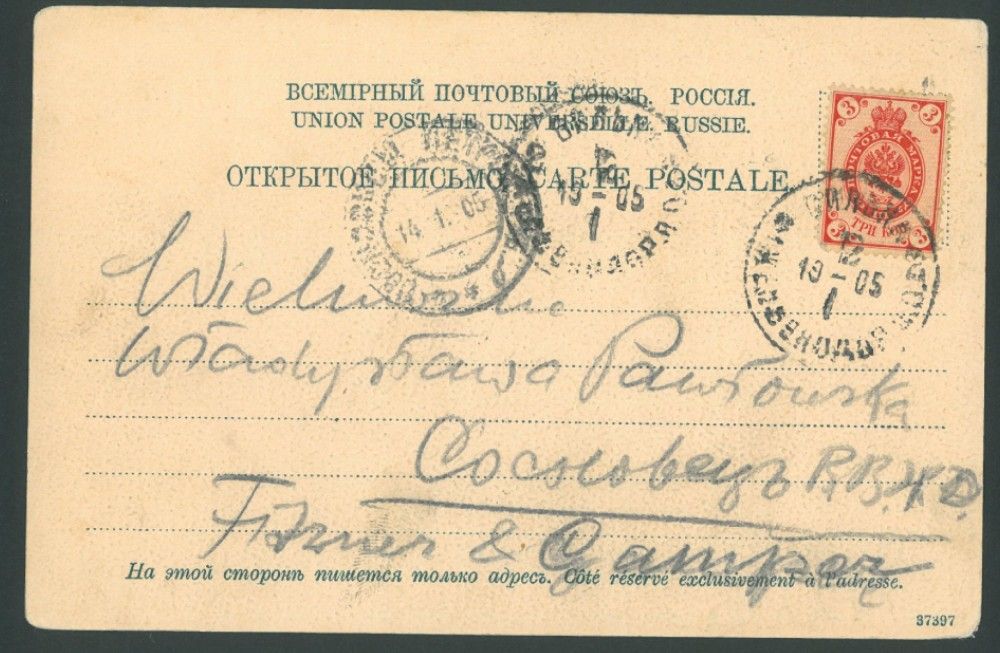 ВСЕМІРНЫЙ ПОЧТОВЫЙ СОЮЗЪ. РОССІЯ.
UNION POSTALE UNIVERSELLE. RUSSIE.
ОТКРЫТОЕ ПИСЬМО. CARTE POSTALE.
3 3
ПОЧТОВАЯ МАРКА
ТРИ КОП.
3 3
14 1 05
12
19 – 05
1
19 – 05
1
Wielmożna
Władysława Pawłowska
Сосновецъ
Fitzner & Gamper
На этой сторонѣ пишется только адресъ. Côté réservé exclusivement à l'adresse.
37397